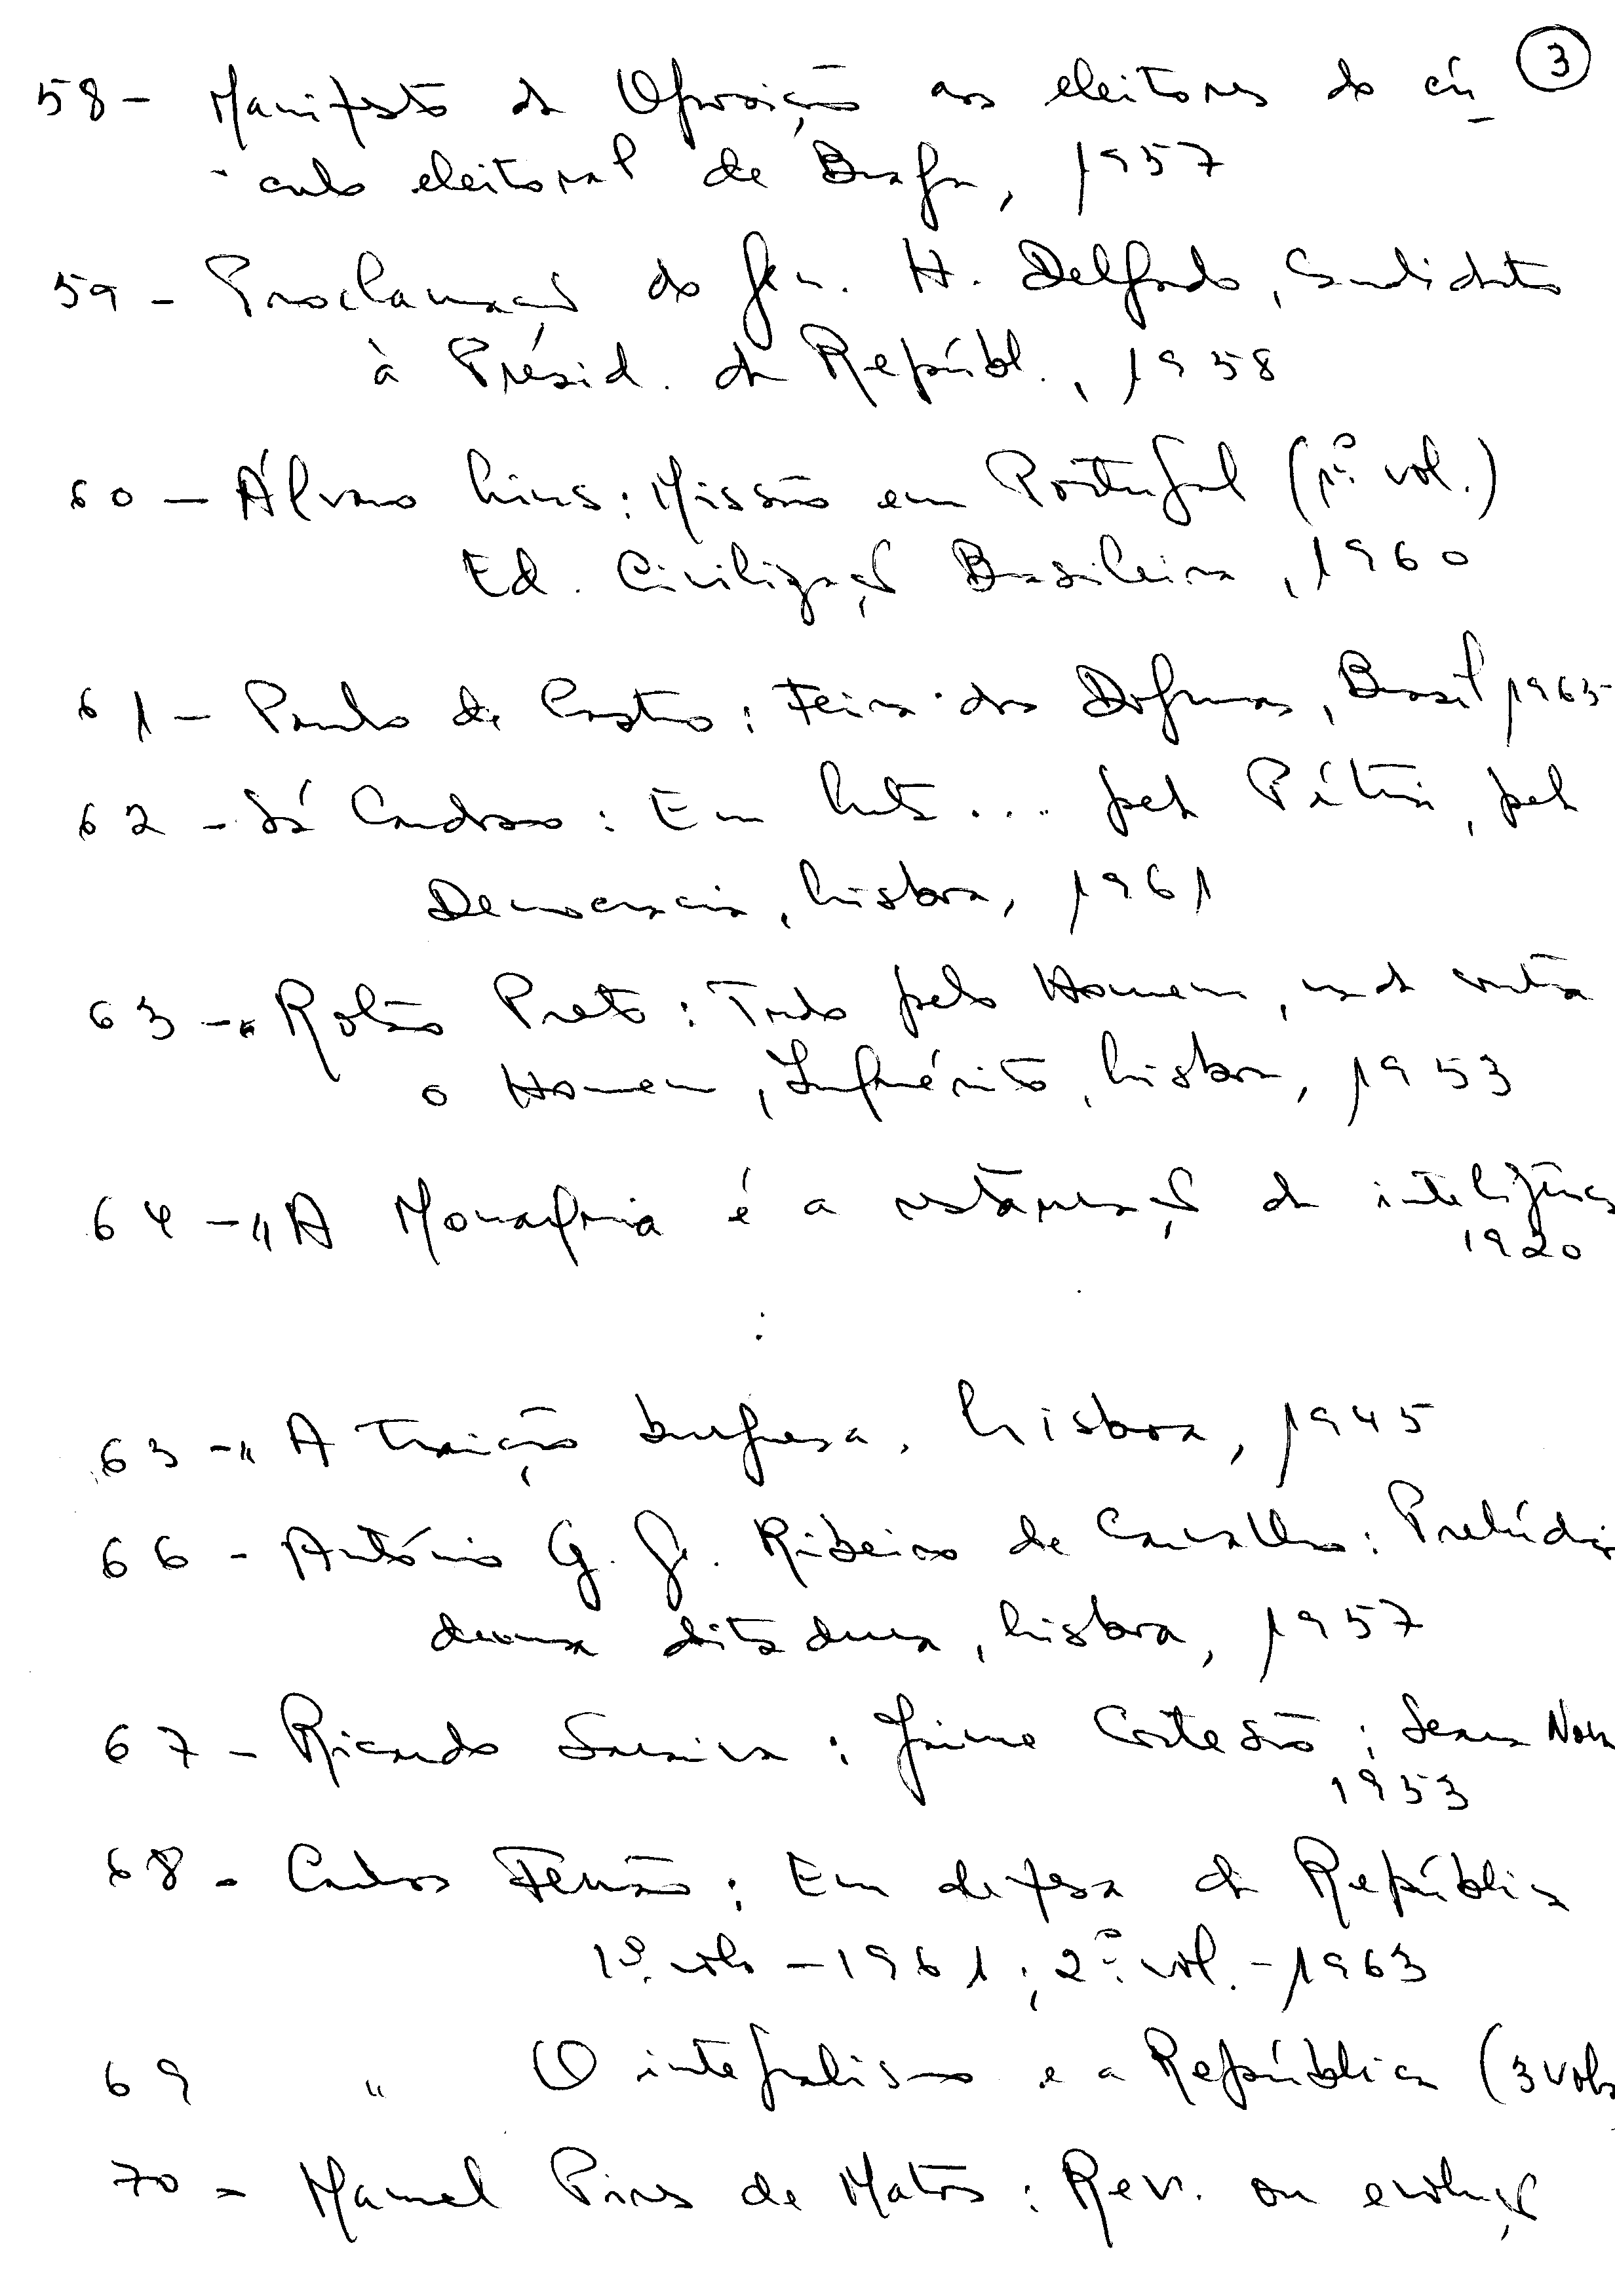 3
58 - Manifesto da Oposição aos eleitores do cír
culo eleitoral de Braga, 1957
59 - Proclamação do Gen. H. Delgado, Candidato
à Présid. da Repúbl., 1958
60 - Álvaro Lins: Missão em Portugal (1º vol.)
Ed. Civilização Brasileira, 1960
61 - Paulo de Castro: Feira dos Dogmas, Brasil 1963-
62 - Sá Cardoso: Em luta ... pela Pátria, pela
Democracia, Lisboa, 1961
63 - " Rolão Preto: Tudo pelo Homem, nada contra
o Homem, Inquérito, Lisboa, 1953
64 - " A Monarquia é a restauração da inteligência
1920
65 - " A Traição burguesa. Lisboa, 1945
66 - António G. G. Ribeiro de Carvalho: Prelúdios
duma ditadura, Lisboa, 1957
67 - Ricardo Saraiva: Jaime Cortesão; Seara Nova
1953
68 - Carlos Ferrão: Em defesa da República
1º. vol. - 1961; 2º. vol. - 1963
69 " O integralismo e a República (3 vols
70 - Manuel Pires de Matos: Rev. ou evolução